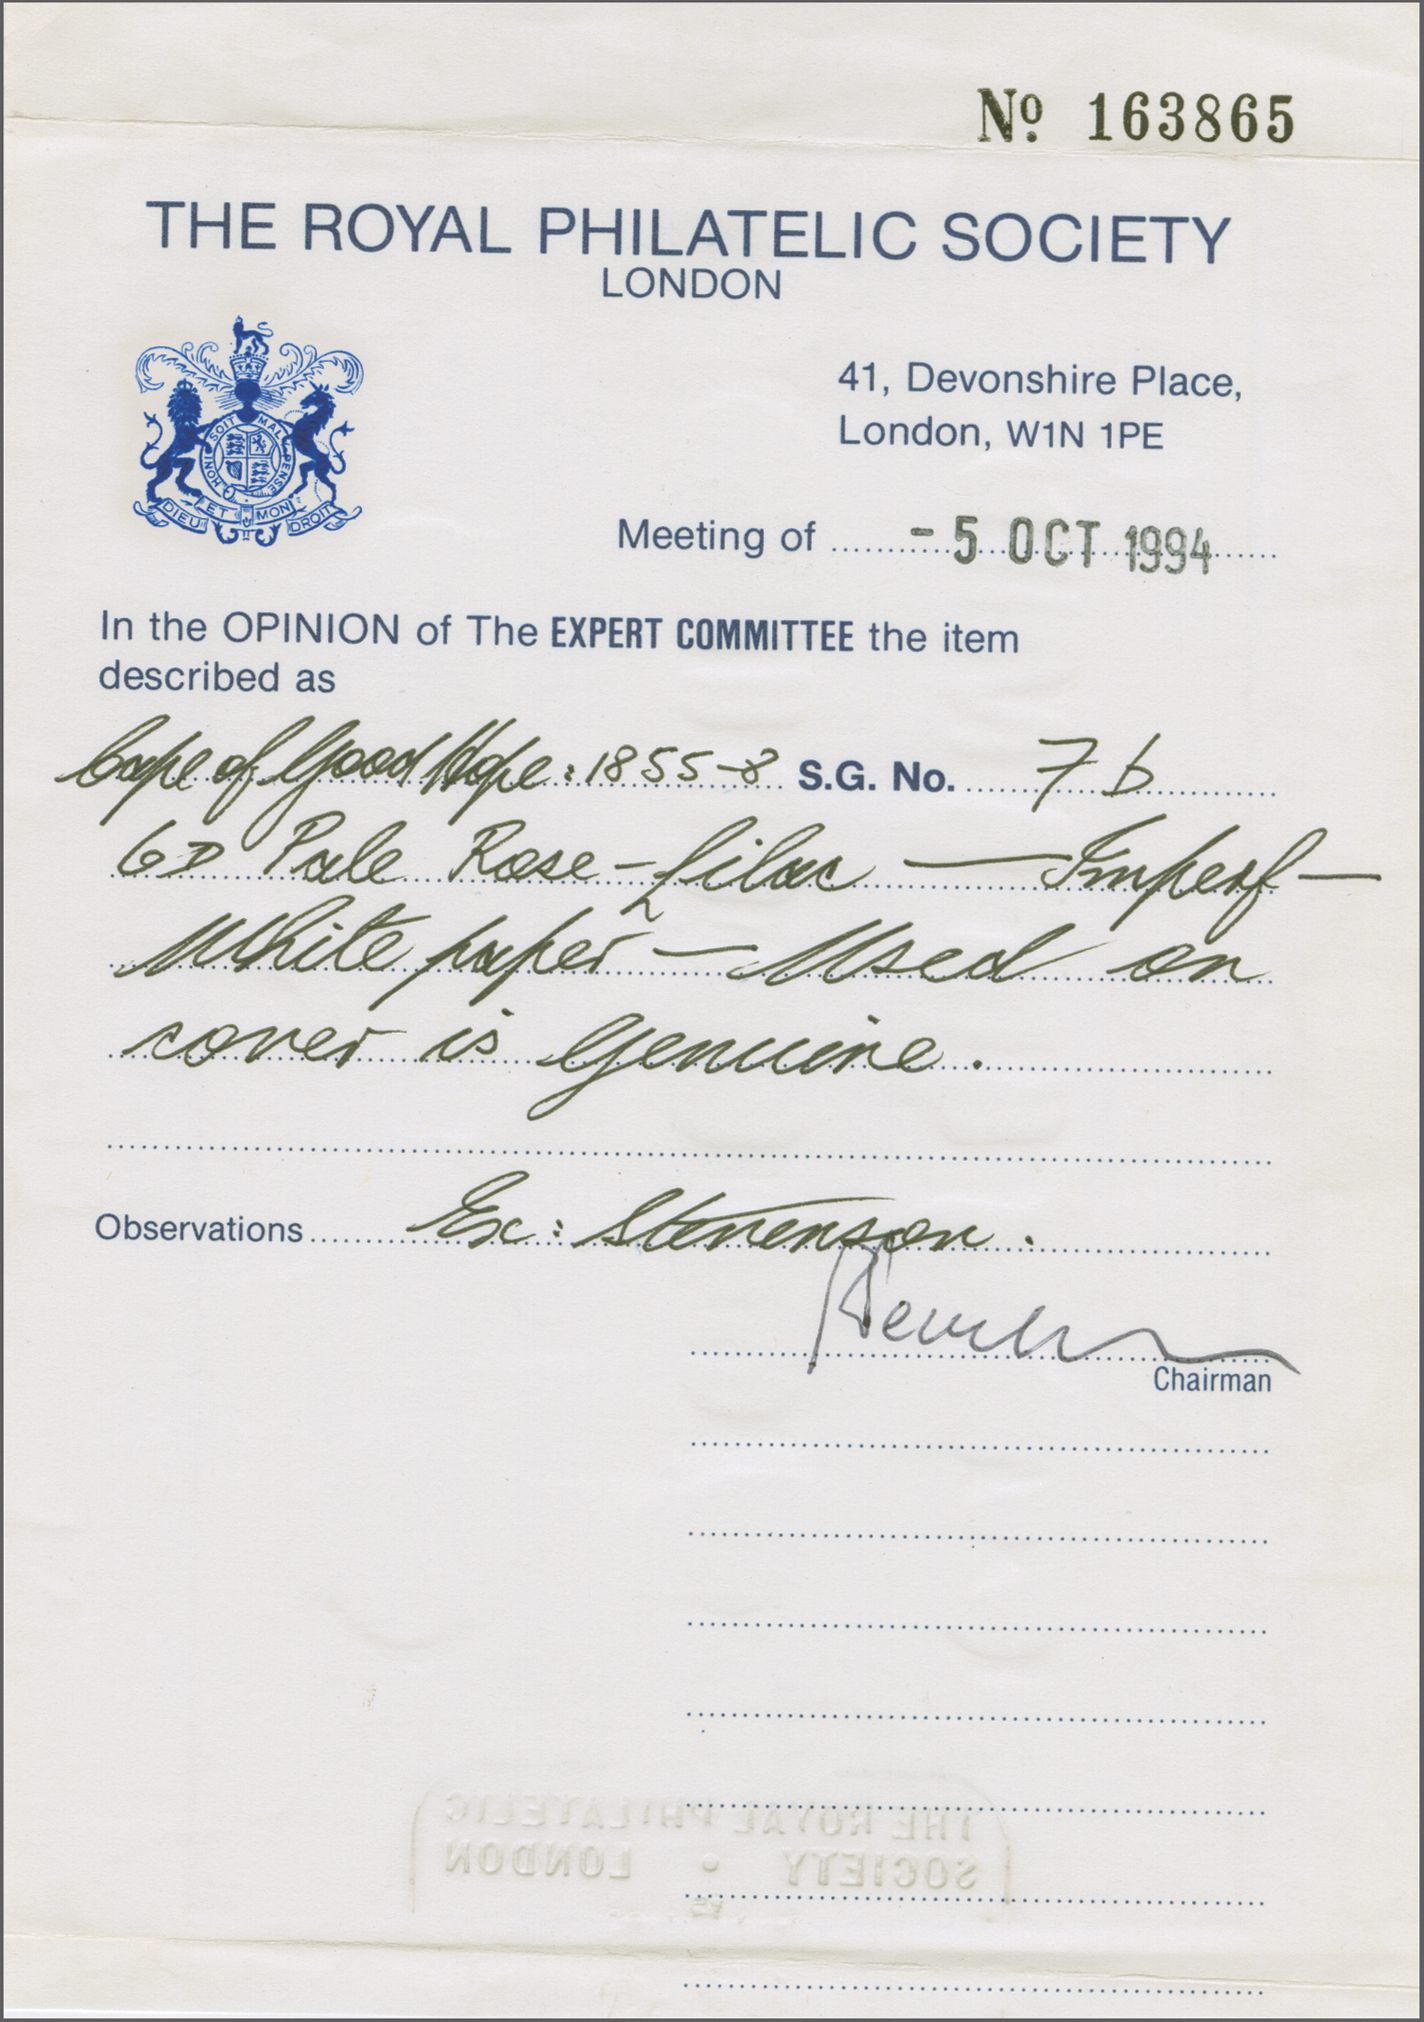 Nº 163865
THE ROYAL PHILATELIC SOCIETY
LONDON
HONI SOIT MAL PENSE
DIEU ET MON DROIT
41, Devonshire Place,
London, W1N 1PE
Meeting of - 5 OCT 1994
In the OPINION of The EXPERT COMMITTEE the item
described as
Cape of Good Hope: 1855-8 S.G. No. 7b
6D Pale Rose-Lilac — Imperf —
White paper — Used on
cover is Genuine.
Observations Ex: Stevenson.
Chairman
THE ROYAL PHILATELIC
SOCIETY • LONDON